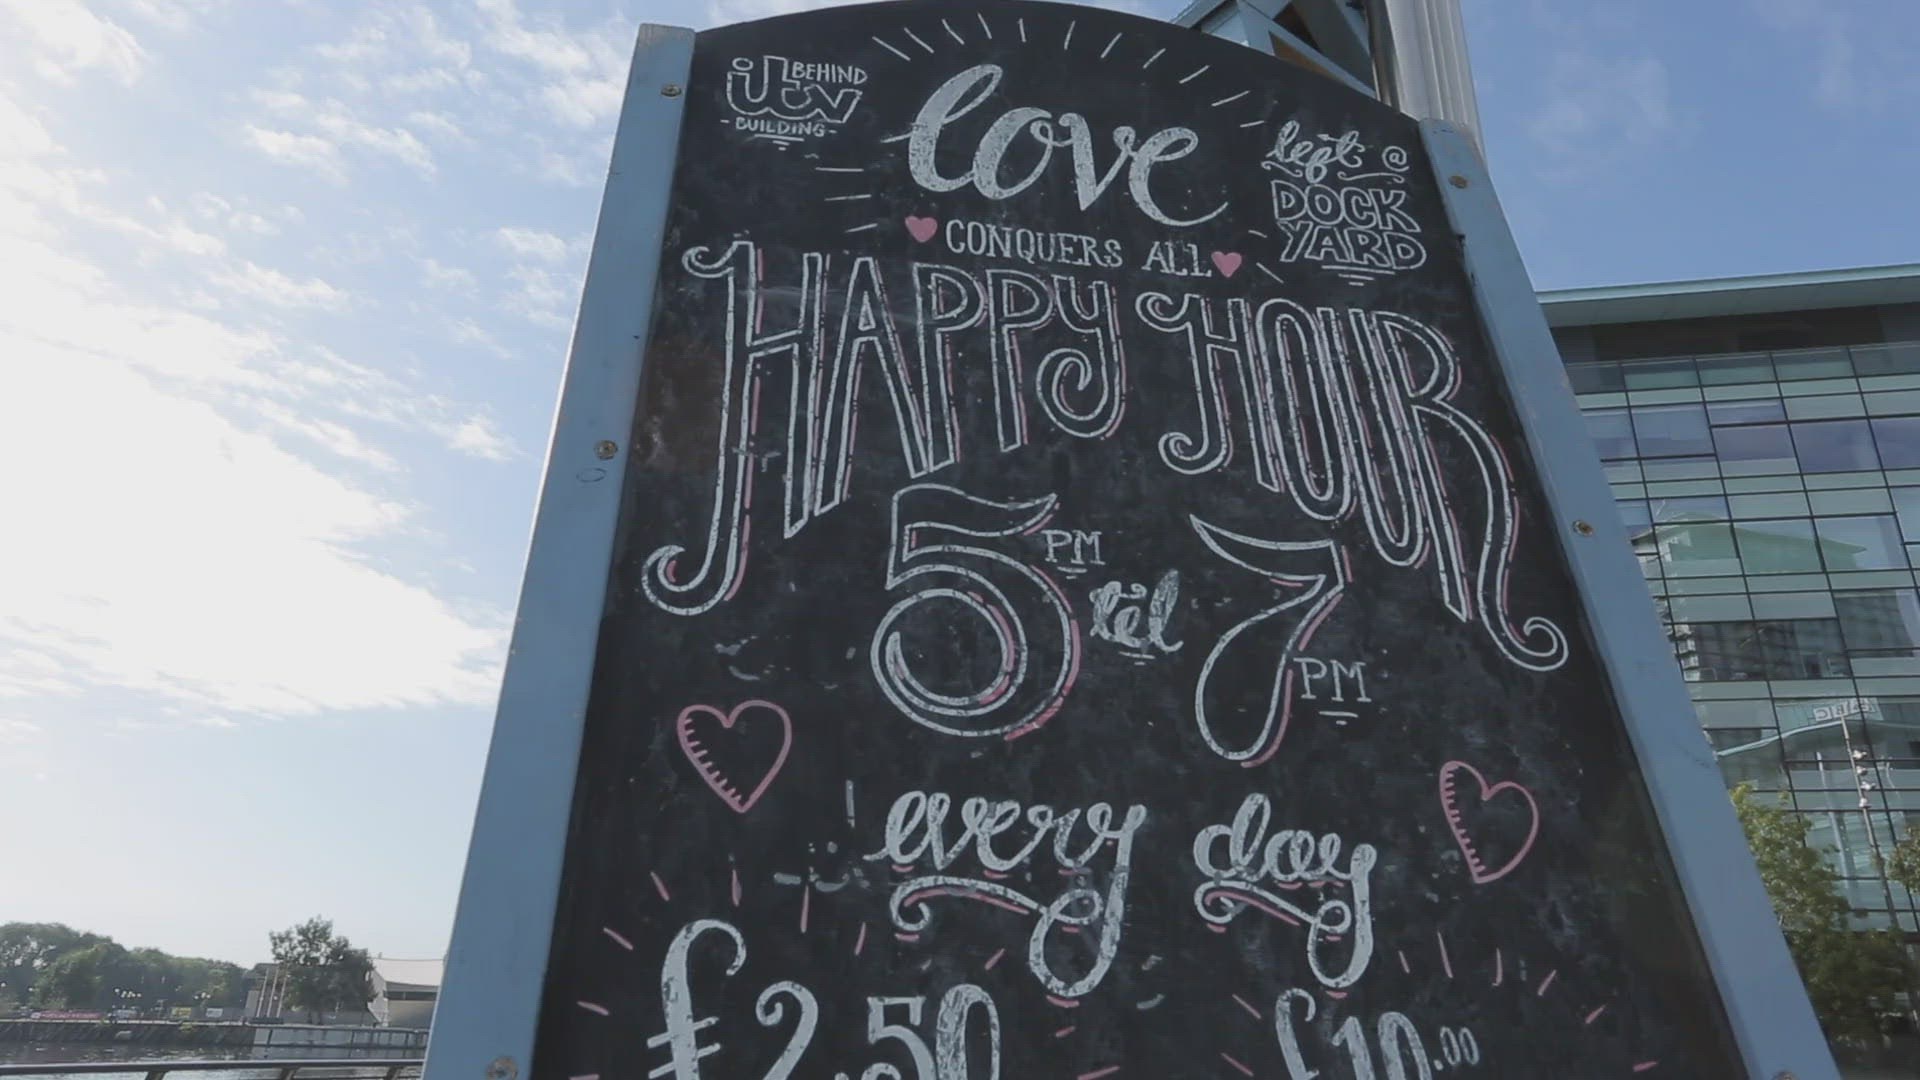 itv BEHIND
- BUILDING -
love
left @
DOCK
YARD
CONQUERS ALL
HAPPY HOUR
5 PM til 7 PM
every day
£2.50 £10.00